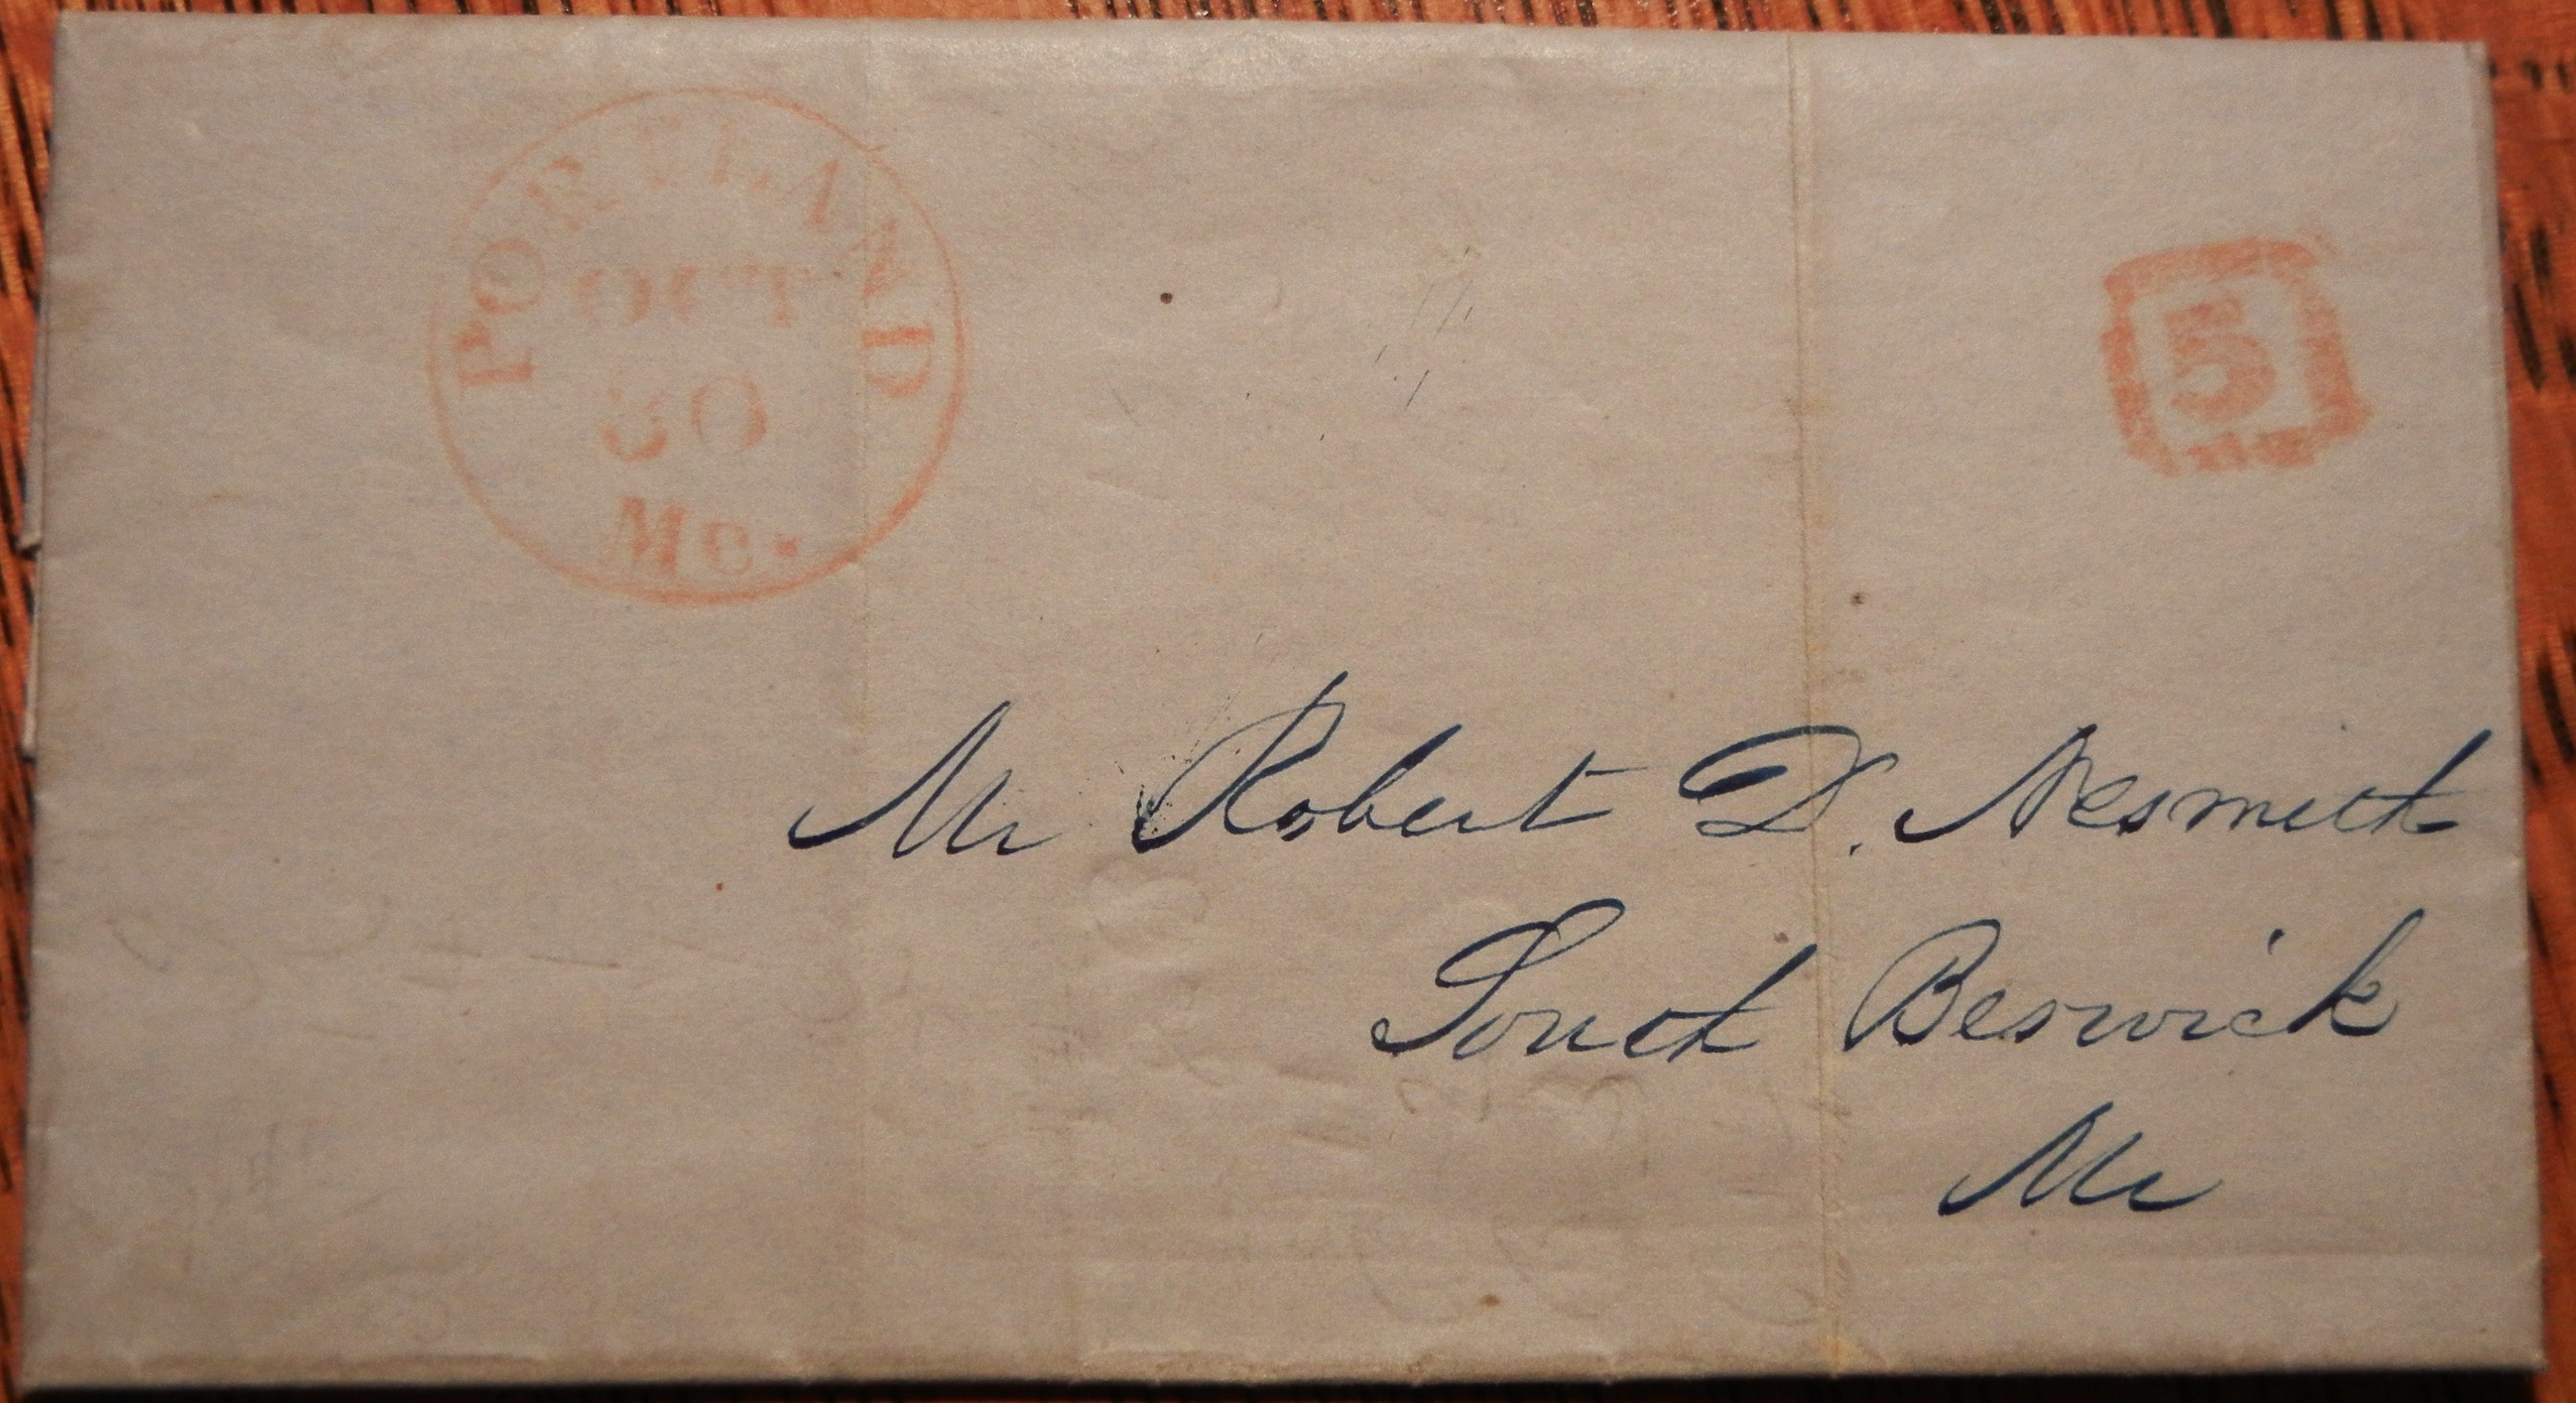 PORTLAND
OCT
30
Me.
5
Mr Robert D. Nesmith
South Berwick
Me